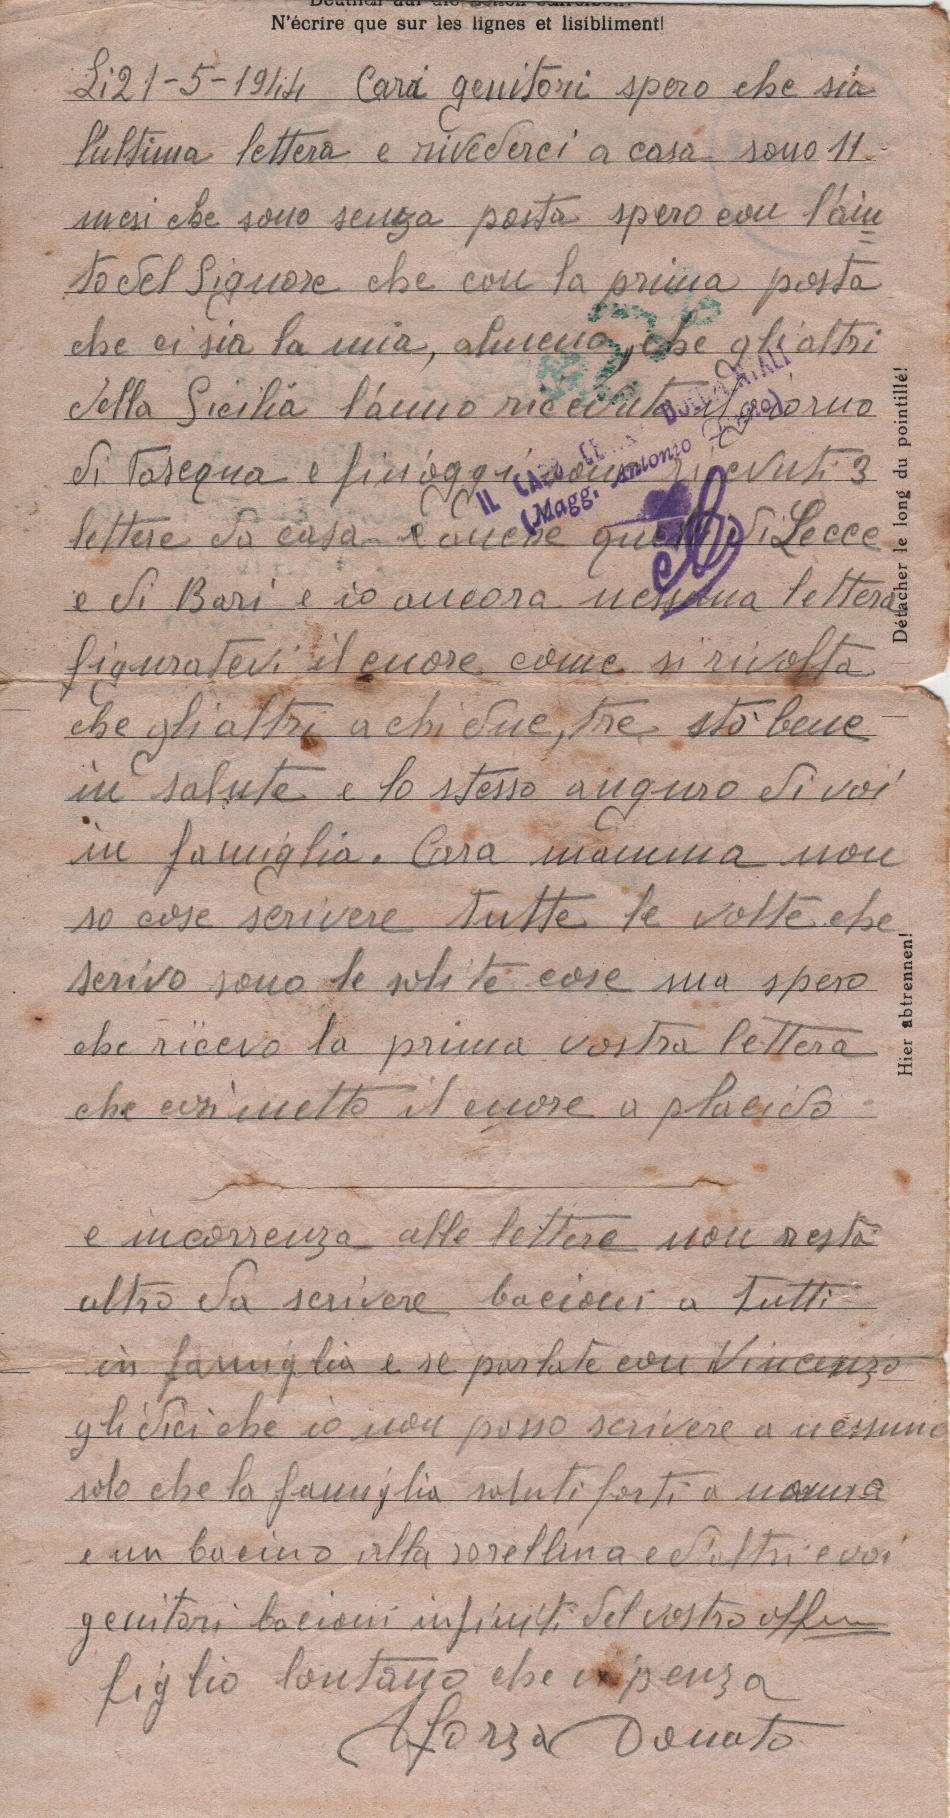 N'écrire que sur les lignes et lisibliment!
Li 21-5-1944 Cari genitori spero che sia
l'ultima lettera e rivederci a casa sono 11
mesi che sono senza posta spero con l'aiu
to del Signore che con la prima posta
che ci sia la mia, almeno, che gli altri
della Sicilia l'anno ricevuta il giorno
di Pasequa e fin'oggi anno ricevuti 3
lettere da casa e anche quelli di Lecce
e di Bari e io ancora nessuna lettera
figuratevi il cuore come si rivolta
che gli altri a chi due, tre stò bene
in salute e lo stesso auguro di voi
in famiglia. Cara mamma non
so cose scrivere tutte le volte che
scrivo sono le solite cose ma spero
che ricevo la prima vostra lettera
che così metto il cuore a placido
e incorrenza alle lettere non resta
altro da scrivere bacioni a tutti
in famiglia e se parlate con Vincenzo
gli dici che io non posso scrivere a nessuno
solo che la famiglia saluti forti a nonna
e un bacino alla sorellina e d'altri e voi
genitori bacioni infiniti del vostro
figlio lontano che vi penza
Sforza Donato
IL CAPO CENTRO DOCUMENTALI
(Magg. Antonio
Détacher le long du pointillé!
Hier abtrennen!